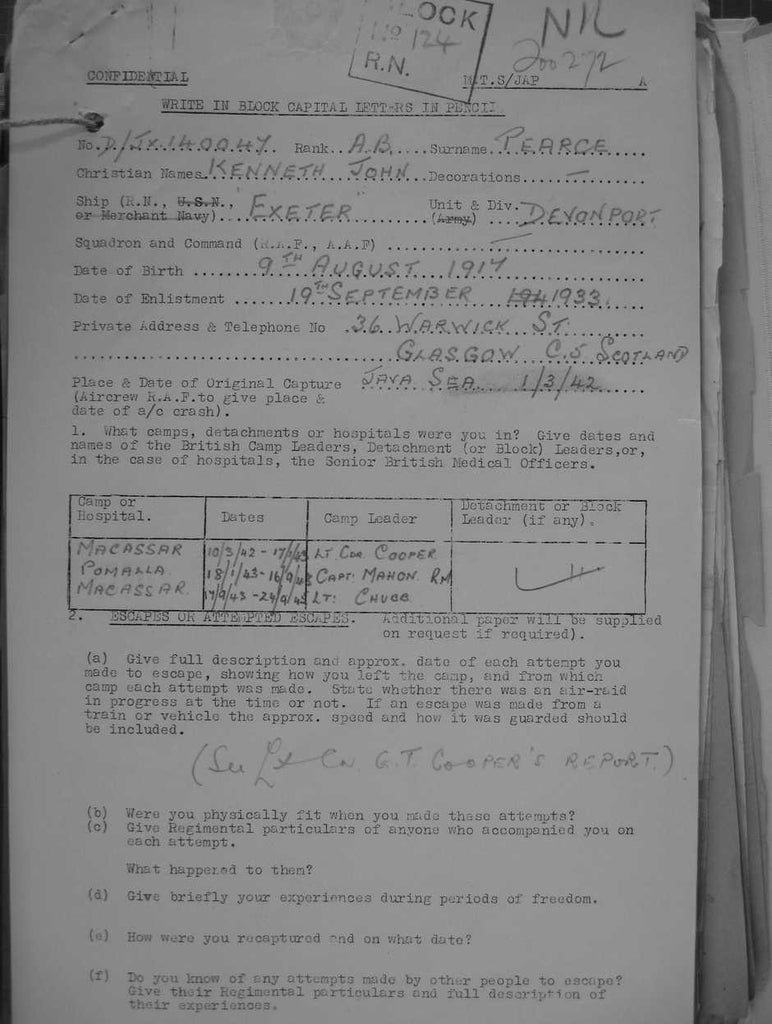 BLOCK
No 124
R.N.
NIL
200272
CONFIDENTIAL M.T.S/JAP A
WRITE IN BLOCK CAPITAL LETTERS IN PENCIL
No. D/JX.140047. Rank..A.B.....Surname.PEARCE.....
Christian Names.KENNETH JOHN..Decorations....—.....
Ship (R.N., U.S.N., Unit & Div.
or Merchant Navy)....EXETER....... (Army) ...DEVONPORT
Squadron and Command (R.A.F., A.A.F) ..........—..........
Date of Birth ........9TH AUGUST 1917...........
Date of Enlistment ......19TH SEPTEMBER 194 1933.
Private Address & Telephone No .36 WARWICK ST.
GLASGOW C.5 SCOTLAND
Place & Date of Original Capture JAVA SEA 1/3/42
(Aircrew R.A.F.to give place &
date of a/c crash).
1. What camps, detachments or hospitals were you in? Give dates and
names of the British Camp Leaders, Detachment (or Block) Leaders,or,
in the case of hospitals, the Senior British Medical Officers.
Camp or Hospital. Dates Camp Leader Detachment or Block Leader (if any).
MACASSAR 10/3/42 - 17/1/43 LT CDR COOPER
POMALLA 18/1/43 - 16/9/43 CAPT: MAHON RM
MACASSAR 17/9/43 - 24/9/45 LT: CHUBB
2. ESCAPES OR ATTEMPTED ESCAPES. Additional paper will be supplied
on request if required).
(a) Give full description and approx. date of each attempt you
made to escape, showing how you left the camp, and from which
camp each attempt was made. State whether there was an air-raid
in progress at the time or not. If an escape was made from a
train or vehicle the approx. speed and how it was guarded should
be included.
(See Lt Cn G.T COOPER'S REPORT.)
(b) Were you physically fit when you made these attempts?
(c) Give Regimental particulars of anyone who accompanied you on
each attempt.
What happened to them?
(d) Give briefly your experiences during periods of freedom.
(e) How were you recaptured and on what date?
(f) Do you know of any attempts made by other people to escape?
Give their Regimental particulars and full description of
their experiences.